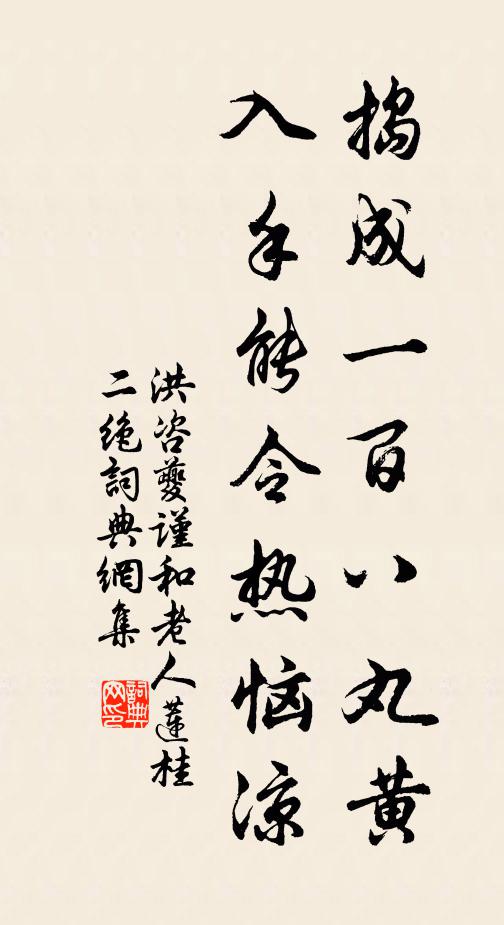 捣成一百八丸黄
入手能令热恼凉
洪咨夔谨和老人莲桂
二绝詞典網集
詞典网印